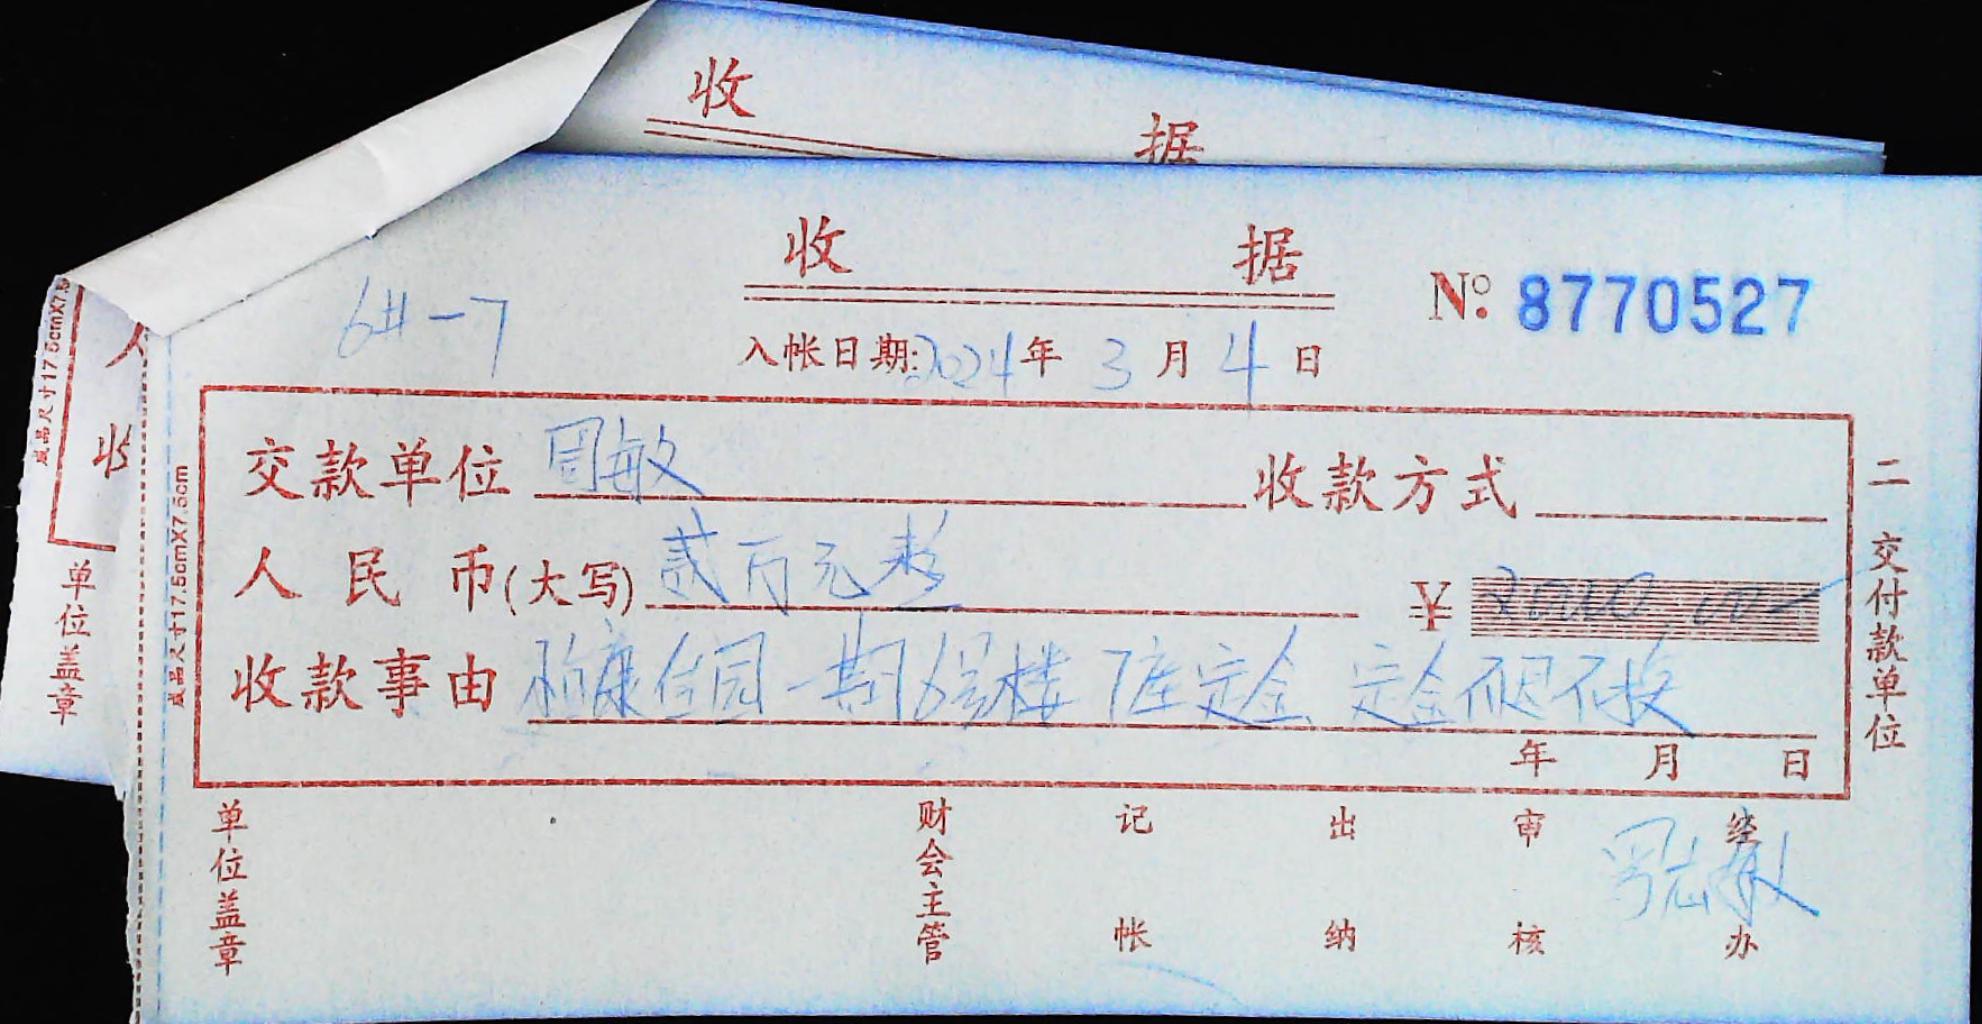 收 据
收 据
No: 8770527
6#-7
入帐日期:2024年 3 月 4 日
交款单位 周敏 收款方式
人民币(大写) 贰万元整 ¥ 20000.00
收款事由 康佳园一期6号楼7座定金 定金不退不换
年 月 日
二 交付款单位
单位盖章 财会主管 记帐 出纳 审核 经办
成品尺寸17.5cmX7.5cm
成品尺寸17.5cmX7.5
人
收
单位盖章